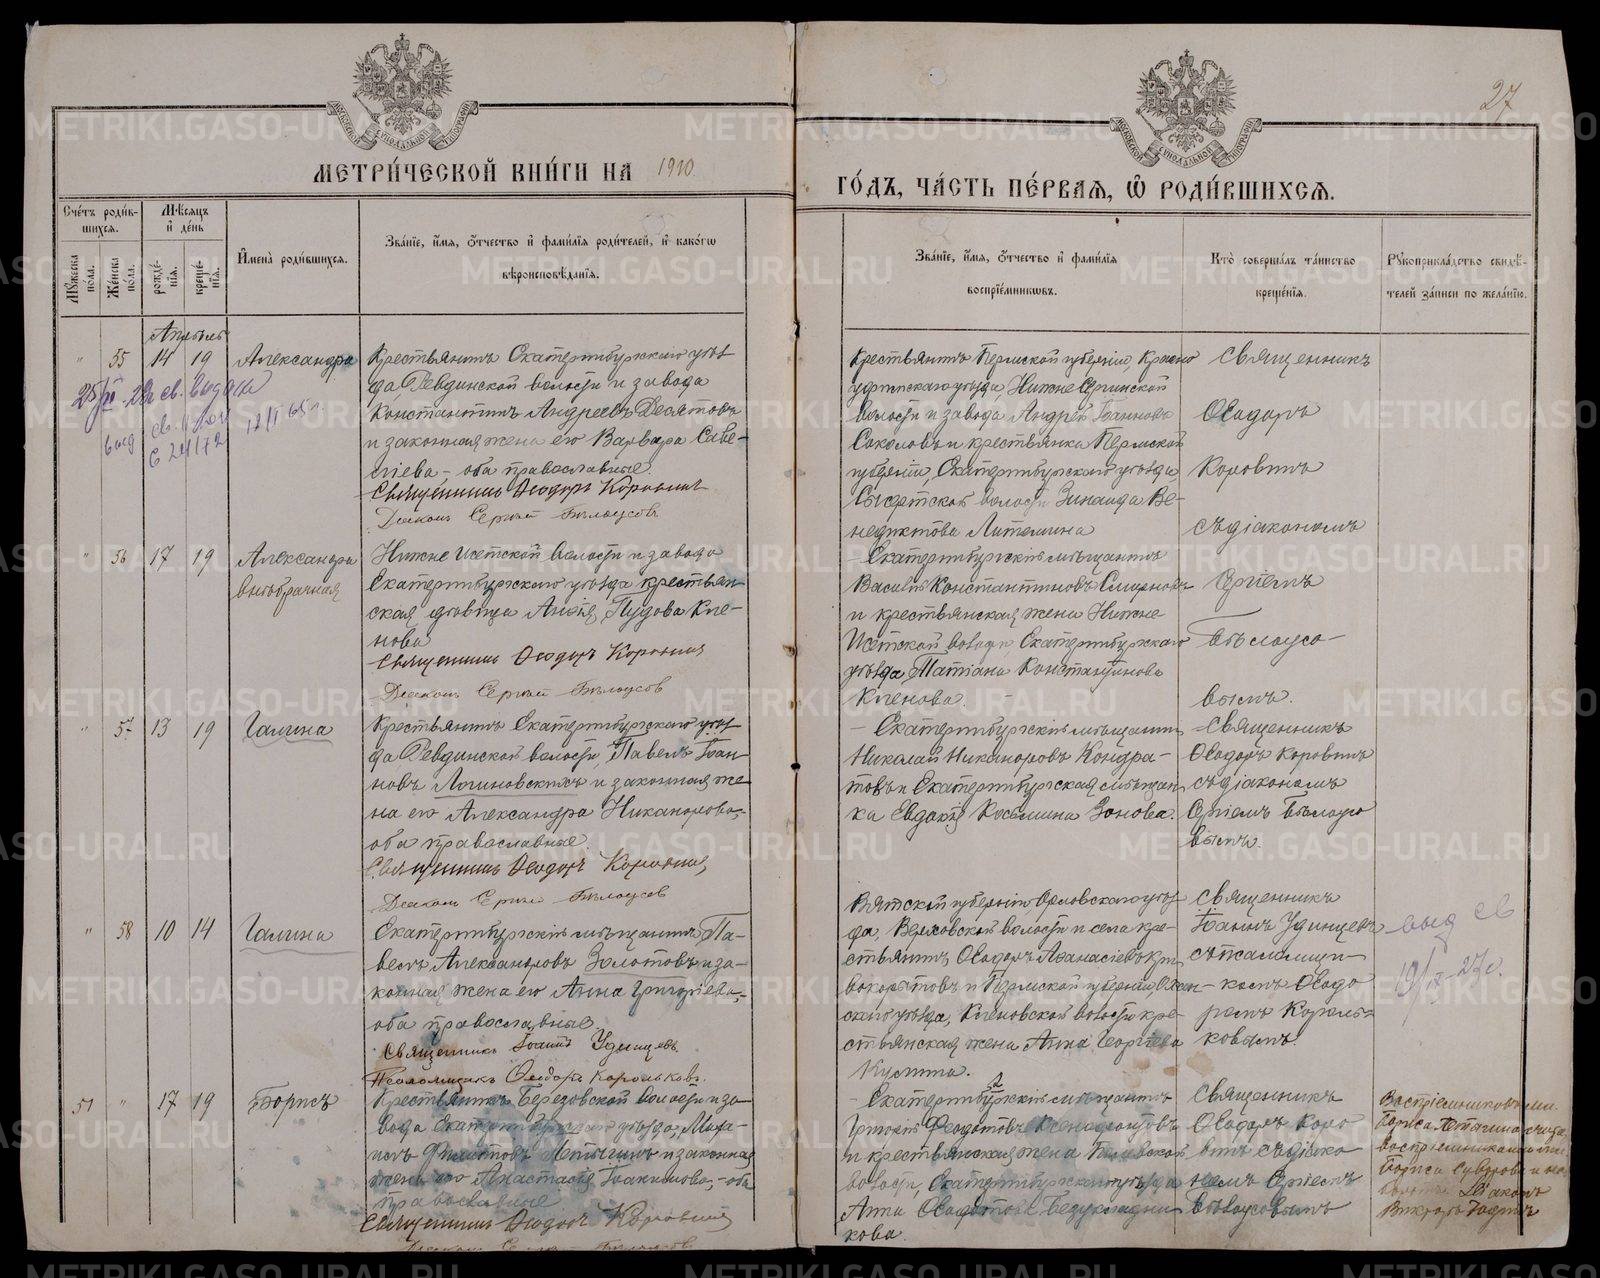 27
МЕТРИ́ЧЕСКОЙ КНИ́ГИ НА 1910
ГО́ДЪ, ЧА́СТЬ ПЕ́РВАЯ, Ѿ РОДИ́ВШИХСЯ.
Сче́тъ роди́в-
шихся.
Мужеска
по́ла.
Же́нска
по́ла.
Мѣсяцъ
и҆ де́нь
рожде́-
нїя.
креще́-
нїя.
И҆мена̀ роди́вшихся.
Зва́нїе, и҆́мя, ѻ҆́тчество и҆ фами́лїя роди́телей, и҆ како́гѡ
вѣроисповѣ́данїя.
Зва́нїе, и҆́мя, ѻ҆́тчество и҆ фами́лїя
воспрїе́мникѡвъ.
Кто̀ соверша́лъ та́инство
креще́нїя.
Рꙋкоприкла́дство свидѣ́-
телей за́писи по жела́нїю.
Апрѣль
" 55 14 19 Александра
Крестьянинъ Екатеринбургскаго уѣз-
да, Ревдинской волости и завода
Константинъ Андреевъ Десятовъ
и законная жена его Варвара Саве-
лiева - оба православные.
Священникъ Ѳеодоръ Коровинъ
Дiаконъ Сергiй Бѣлоусовъ
Крестьянинъ Пермской губернiи, Красно
уфимскаго уѣзда, Нижне Сергинской
волости и завода Андрей Iоанновъ
Соколовъ и крестьянка Пермской
губернiи, Екатеринбургскаго уѣзда,
Сысертской волости Зинаида Ве-
недиктова
Священникъ
Ѳеодоръ
Коровинъ
съ дiакономъ
Сергiемъ
Бѣлоусо-
вымъ.
" 56 17 19 Александра
внѣбрачная
Нижне Исетской волости и завода
Екатеринбургскаго уѣзда крестьян-
ская дѣвица Пудова Кле-
нова
Священникъ Ѳеодоръ Коровинъ
Дiаконъ Сергiй Бѣлоусовъ
- Екатеринбургскiй мѣщанинъ
Василiй Константиновъ Смирновъ
и крестьянская жена Нижне
Исетской волости Екатеринбургскаго
уѣзда, Татiана Константинова
Кленова.
" 57 13 19 Галина
Крестьянинъ Екатеринбургскаго уѣз-
да Ревдинской волости, Павелъ Iоан-
новъ Логиновскихъ и законная же-
на его Александра Никанорова,-
оба православные.
Священникъ Ѳеодоръ Коровинъ,
Дiаконъ Сергiй Бѣлоусов
- Екатеринбургскiй мѣщанинъ
Николай Никаноровъ Кондра-
товъ и Екатеринбургская мѣщан-
ка Евдокiя Косьмина Зонова.
- Священникъ
Ѳеодоръ Коровинъ
съ дiакономъ
Сергiемъ Бѣлоусо
вымъ.
" 58 10 14 Галина
Екатеринбургскiй мѣщанинъ Па-
велъ Александровъ Золотовъ и за-
конная жена его Анна Григорiева,-
оба православные.
Священникъ Iоаннъ Удинцевъ.
Псаломщикъ Ѳеодоръ Корольковъ.
Вятской губернiи, Орловскаго уѣз-
да, Верховской волости и села кре-
стьянинъ Ѳеодоръ Аѳанасiевъ
и Пермской губернiи, Охан-
скаго уѣзда, Кленовской волости кре-
стьянская жена Анна Георгiева
Священникъ
Iоаннъ Удинцевъ
съ псаломщи-
комъ Ѳеодо
ромъ Король-
ковымъ.
выд св
51 " 17 19 Борисъ
Крестьянинъ Березовской волости и за-
вода Екатеринбургскаго уѣзда, Миха-
илъ Филиповъ и законная
жена его Анастасiя Iоакимова,- оба
православные
Священникъ Ѳеодоръ Коровинъ
Дiаконъ Сергiй Бѣлоусовъ
- Екатеринбургскiй мѣщанинъ
Григорiй Ѳеодотовъ Ксенофонтовъ
и крестьянская жена
волости, Екатеринбургскаго уѣзда
Анна Ѳеодотова Безукладни
кова.
Священникъ
Ѳеодоръ Коро
винъ съ дiако
номъ Сергiемъ
Бѣлоусовымъ
Дiаконъ
Викторъ